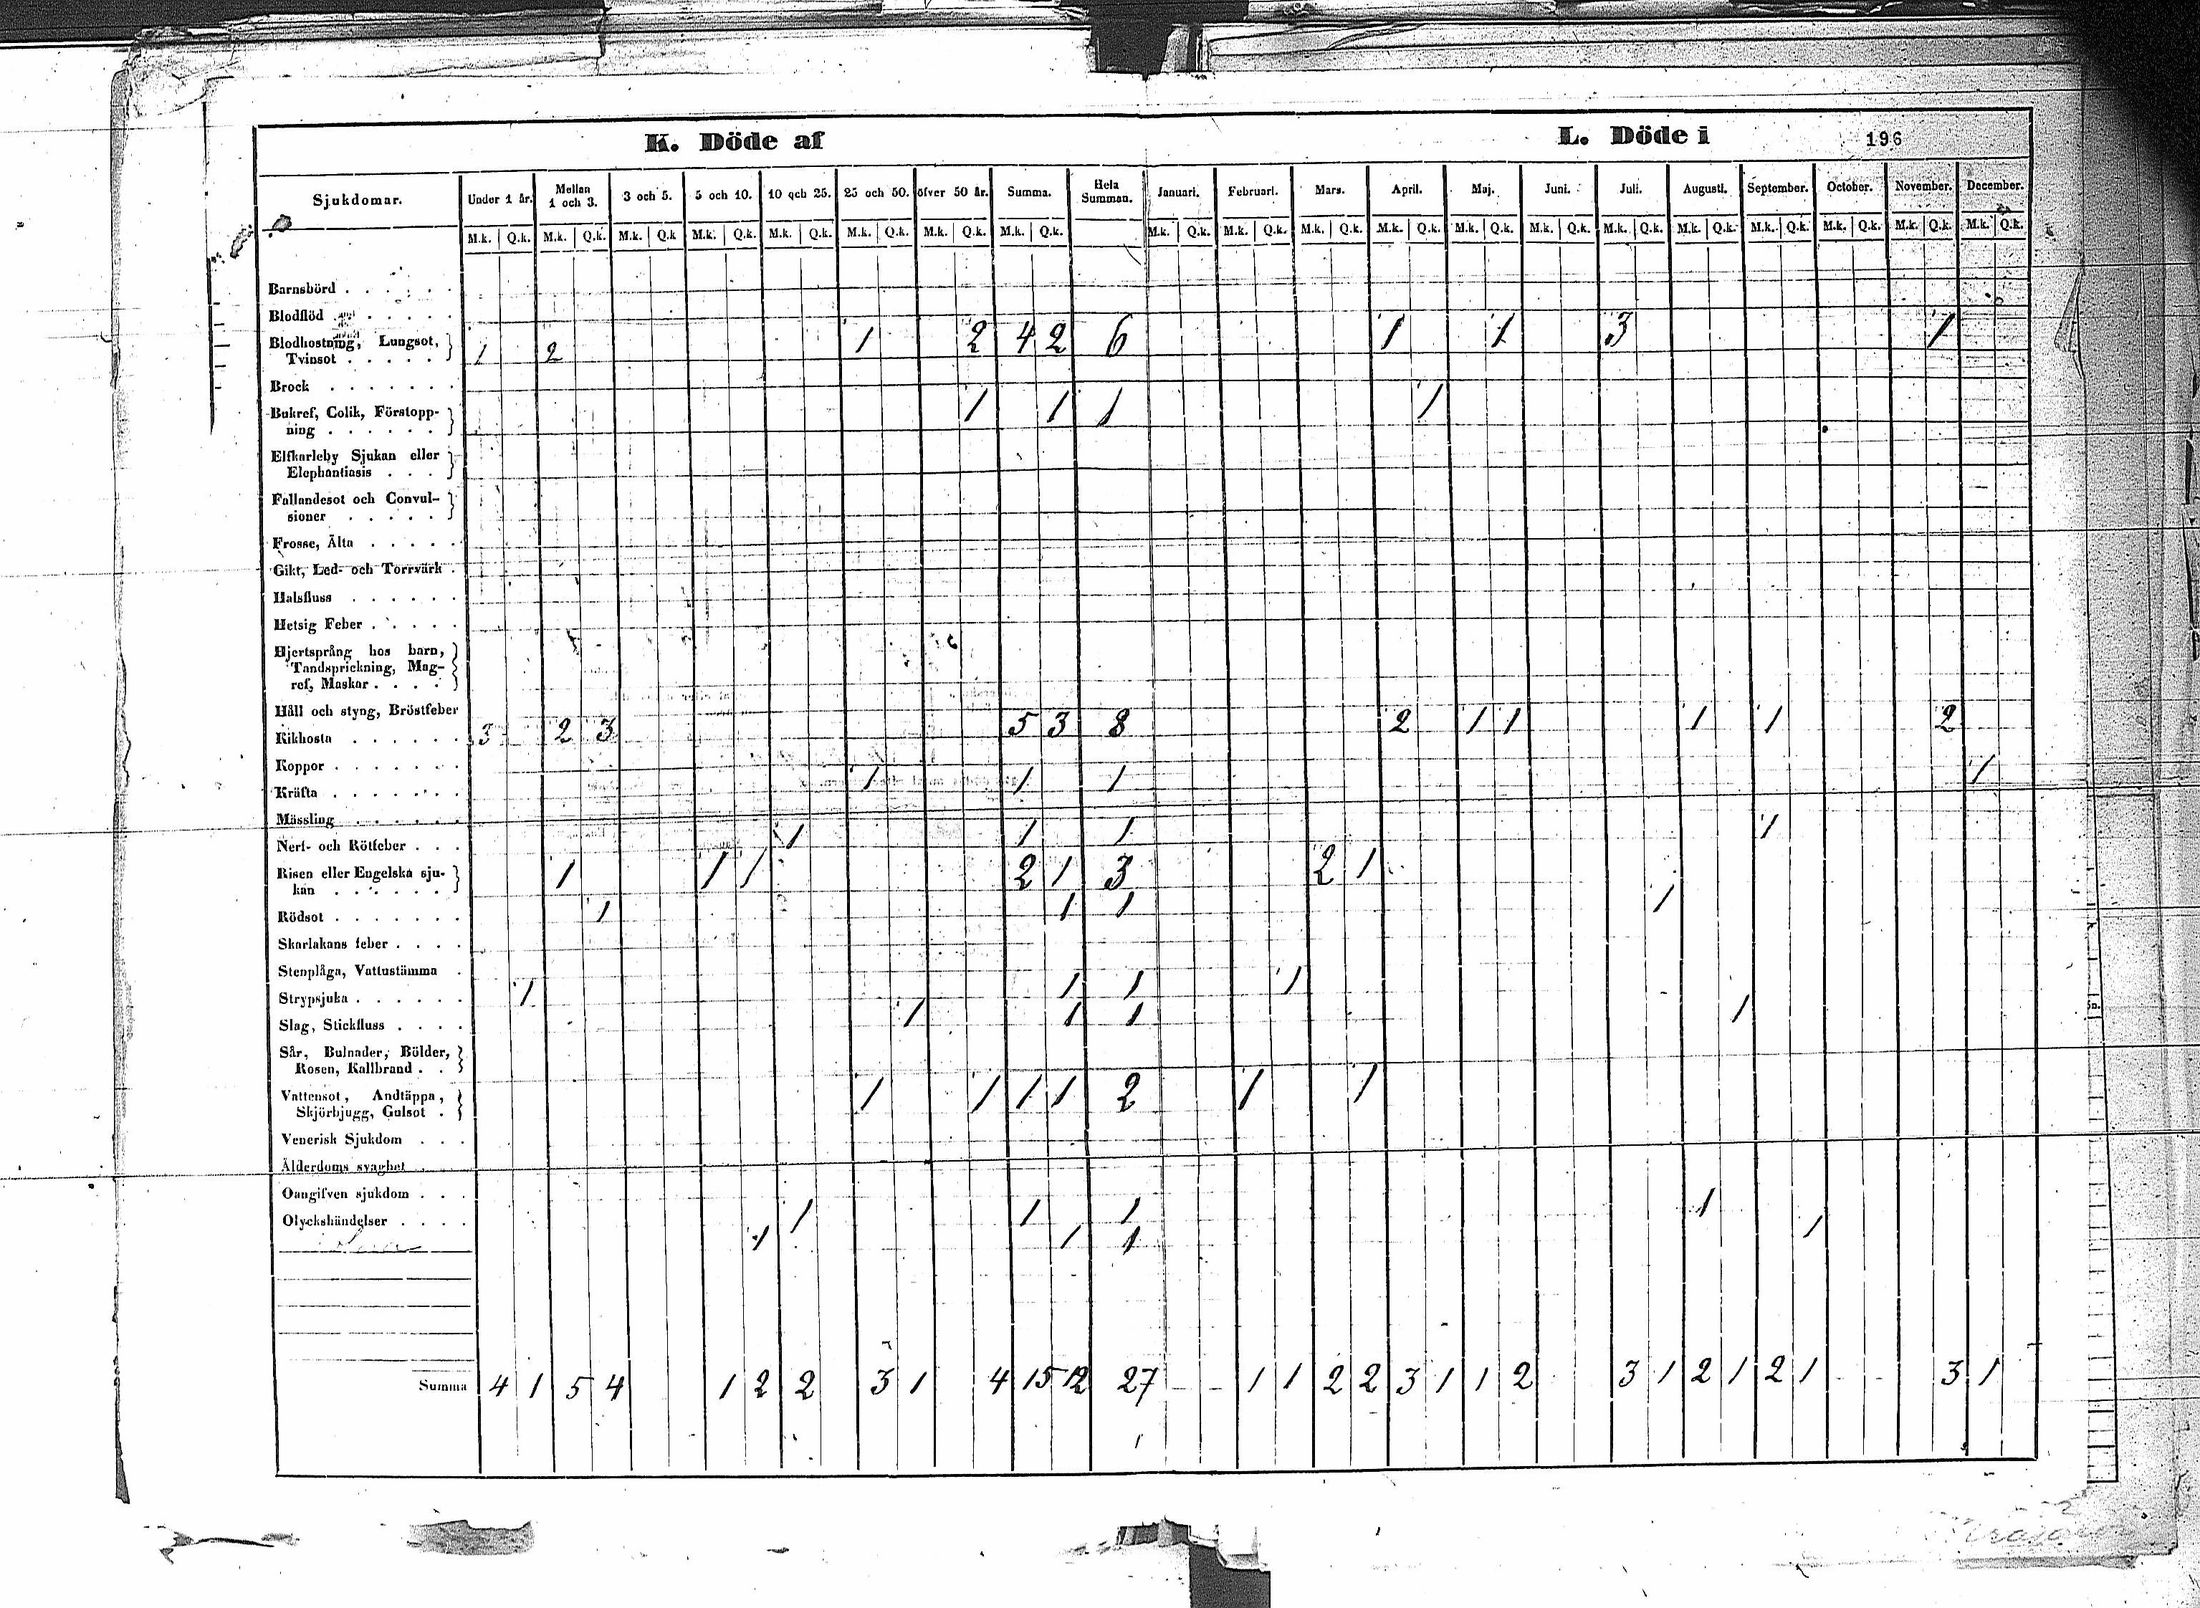 K. Döde af L. Döde i 196
Sjukdomar. Under 1 år. Mellan 1 och 3. 3 och 5. 5 och 10. 10 och 25. 25 och 50. öfver 50 år. Summa. Hela Summan. Januari. Februari. Mars. April. Maj. Juni. Juli. Augusti. September. October. November. December.
M.k. Q.k. M.k. Q.k. M.k. Q.k M.k. Q.k. M.k. Q.k. M.k. Q.k. M.k. Q.k. M.k. Q.k. M.k. Q.k. M.k. Q.k. M.k. Q.k. M.k. Q.k. M.k. Q.k. M.k. Q.k. M.k. Q.k. M.k. Q.k. M.k. Q.k. M.k. Q.k. M.k. Q.k. M.k. Q.k.
Barnsbörd
Blodflöd
Blodhostning, Lungsot,
Tvinsot 1 2 1 2 4 2 6 1 1 3 1
Brock
Bukref, Colik, Förstopp-
ning 1 1 1 1
Elfkarleby Sjukan eller
Elephantiasis
Fallandesot och Convul-
sioner
Frosse, Älta
Gikt, Led- och Torrvärk
Halsfluss
Hetsig Feber
Hjertsprång hos barn,
Tandsprickning, Mag-
ref, Maskar
Håll och styng, Bröstfeber
Kikhosta 3 2 3 5 3 8 2 1 1 1 1 2
Koppor
Kräfta 1 1 1 1
Mässling
Nerf- och Rötfeber 1 1 1 1
Risen eller Engelska sju-
kan 1 1 1 2 1 3 2 1
Rödsot 1 1 1 1
Skarlakans feber
Stenplåga, Vattustämma
Strypsjuka 1 1 1 1
Slag, Stickfluss 1 1 1 1
Sår, Bulnader, Bölder,
Rosen, Kallbrand
Vattensot, Andtäppa,
Skjörbjugg, Gulsot 1 1 1 1 2 1 1
Venerisk Sjukdom
Ålderdoms svaghet
Oangifven sjukdom
Olyckshändelser 1 1 1 1
1 1 1 1
Summa 4 1 5 4 1 2 2 3 1 4 15 12 27 1 1 2 2 3 1 1 2 3 1 2 1 2 1 3 1